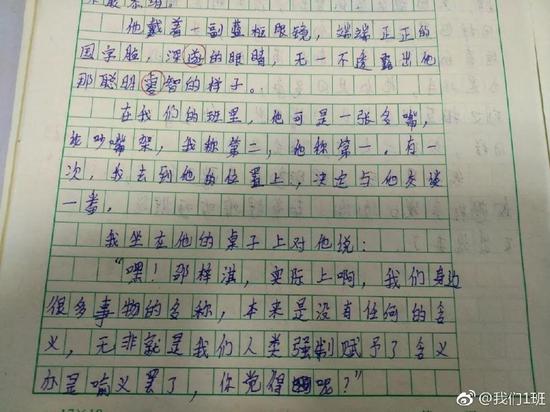 他戴着一副蓝框眼镜，端端正正的
国字脸，深邃的眼睛，无一不透露出他
那聪明睿智的样子。
在我们的班里，他可是一张多嘴，
吵嘴架，我称第二，他称第一，有一
次，我去到他的位置上，决定与他交谈
一番。
我坐在他的桌子上对他说：
“嘿！那样淇，实际上啊，我们身边
很多事物的名称，本来是没有任何的含
义，无非就是我们人类强制赋予了含义
亦是喻义罢了，你觉得呢？”
@我们1班